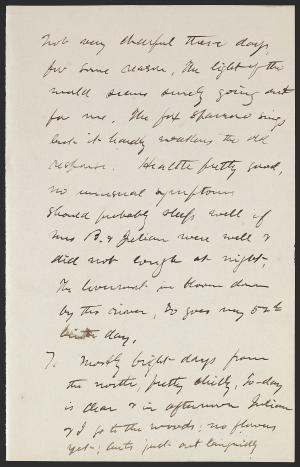 not very cheerful these days
for some reason, the light of the
world seems surely going out
for me. The fox sparrow sings
but it hardly awakens the old
response. Health pretty good,
no unusual symptoms
should probably sleep well if
Mrs B. & Julian were well &
did not cough at night.
The liverwort in bloom down
by the river. So goes my 52d
birth day.
7. Mostly bright days from
the north, pretty chilly, To-day
is clear & in afternoon Julian
& I go to the woods; no flowers
yet; ants just out languidly